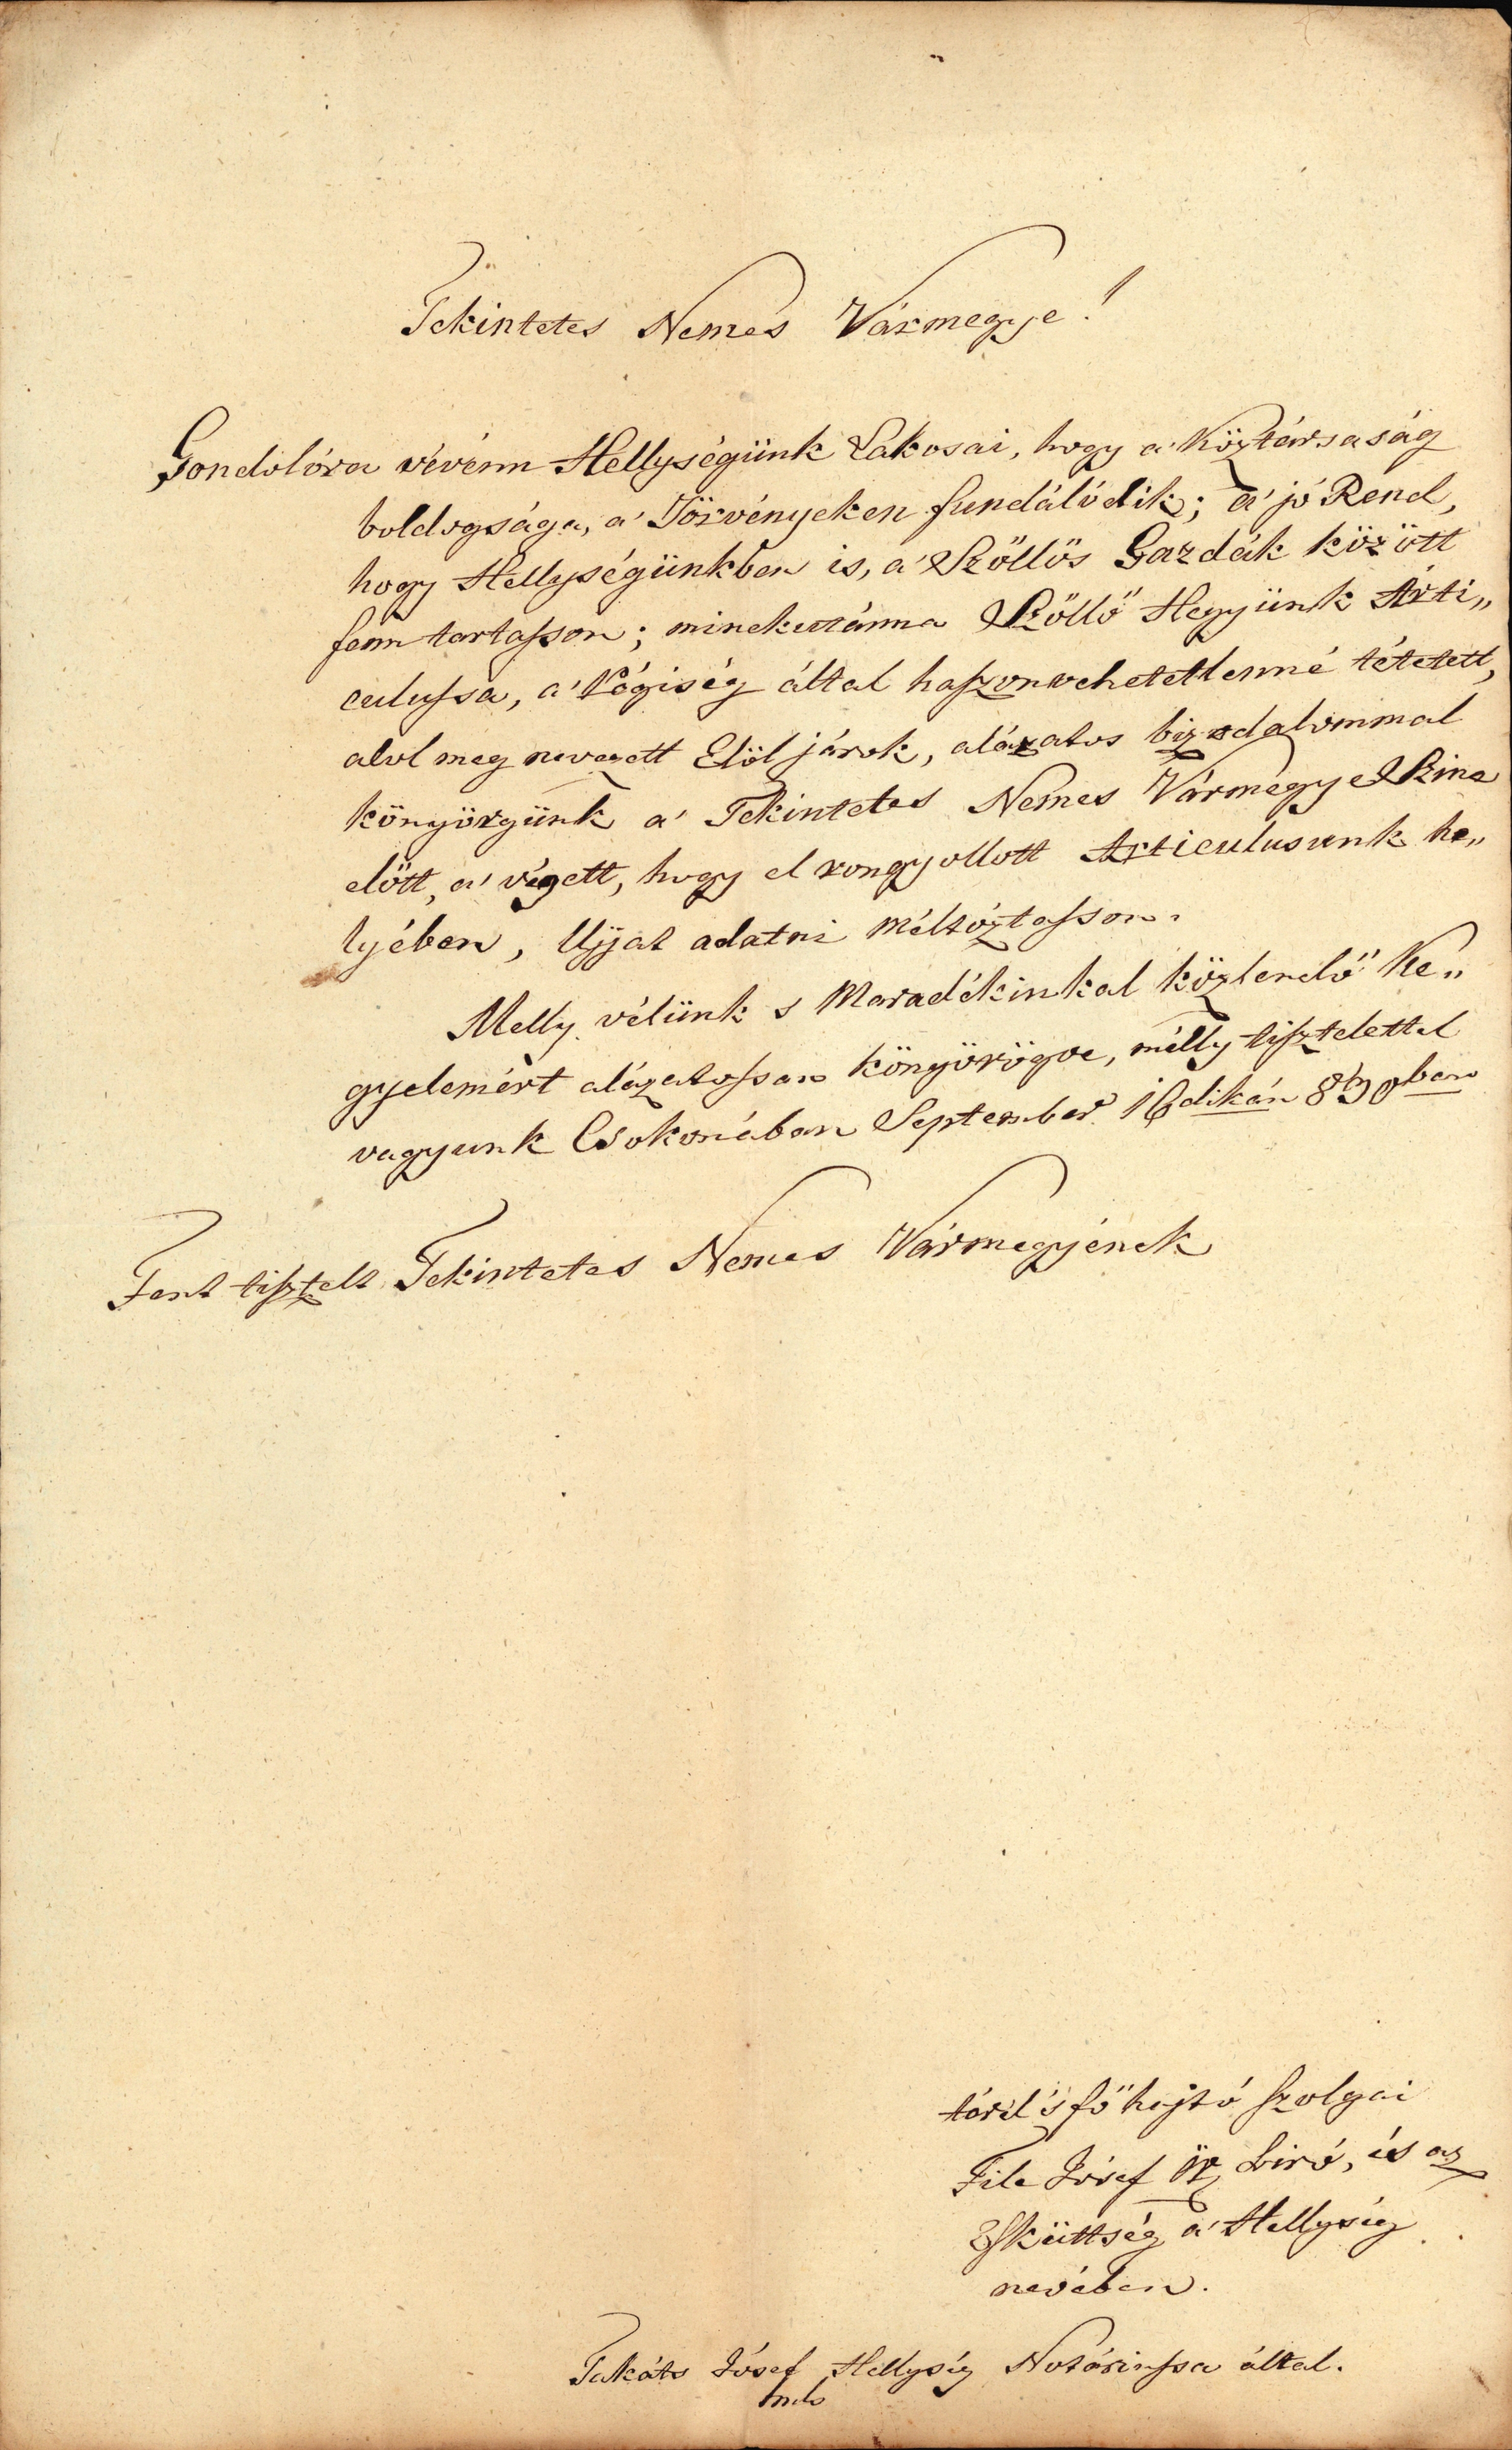 Tekintetes Nemes Vármegye!
Gondolóra vévénn Hellységünk Lakosai, hogy a' Köztársaság
boldogsága, a' Törvényeken fundálódik; a' jó Rend,
hogy Hellységünkben is, a' Szőllős Gazdák között
fenn tartasson; minekutánna Szőllő Hegyünk Arti„
culussa, a' Régiség által haszonvehetetlenné tétetett,
alol meg nevezett Elöl járok, alázatos bizodalommal
könyörgünk a' Tekintetes Nemes Vármegye Szine
előtt, a' végett, hogy el rongyollott Articulusunk he„
lyében, Ujjat adatni méltóztasson.
Melly vélünk s Maradékinkal közlendő Ke„
gyelemért alázatossan könyörögve, mélly tisztelettel
vagyunk Csokonában September 16dikán 830ban
Fent tisztelt Tekintetes Nemes Vármegyének
főhajtó szolgai
File Jósef Biró, és az
Esküttség a' Hellység
nevében.
Takáts Jósef Hellység Notáriussa által.